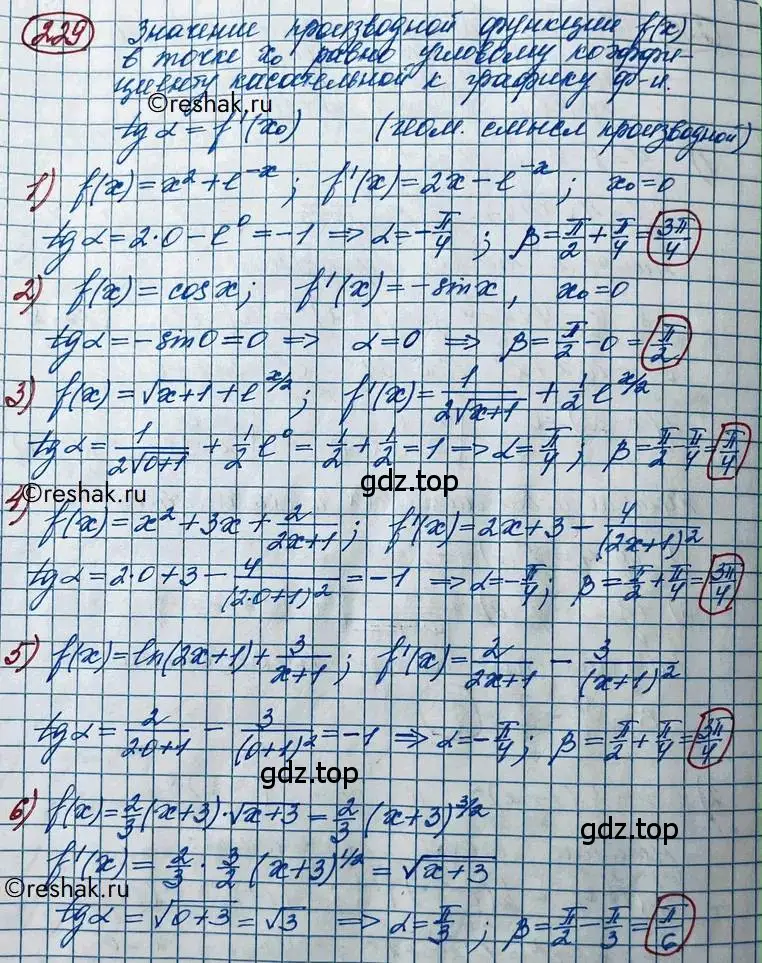 229 Значение производной функции f(x)
в точке x₀ равно угловому коэффи-
циенту касательной к графику ф-и.
©reshak.ru
tg α = f'(x₀) (геом. смысл производной)
1) f(x) = x² + e⁻ˣ; f'(x) = 2x − e⁻ˣ; x₀ = 0
tg α = 2·0 − e⁰ = −1 ⇒ α = −π/4; β = π/2 + π/4 = 3π/4
2) f(x) = cos x; f'(x) = −sin x, x₀ = 0
tg α = −sin 0 = 0 ⇒ α = 0 ⇒ β = π/2 − 0 = π/2
3) f(x) = √x+1 + e^(x/2); f'(x) = 1/(2√(x+1)) + 1/2 e^(x/2)
tg α = 1/(2√(0+1)) + 1/2 e⁰ = 1/2 + 1/2 = 1 ⇒ α = π/4; β = π/2 − π/4 = π/4
gdz.top
©reshak.ru
4) f(x) = x² + 3x + 2/(2x+1); f'(x) = 2x + 3 − 4/(2x+1)²
tg α = 2·0 + 3 − 4/(2·0+1)² = −1 ⇒ α = −π/4; β = π/2 + π/4 = 3π/4
5) f(x) = ln(2x+1) + 3/(x+1); f'(x) = 2/(2x+1) − 3/(x+1)²
tg α = 2/(2·0+1) − 3/(0+1)² = −1 ⇒ α = −π/4; β = π/2 + π/4 = 3π/4
gdz.top
6) f(x) = 2/3 (x+3)·√x+3 = 2/3 (x+3)^(3/2)
gdz.top
f'(x) = 2/3 · 3/2 (x+3)^(1/2) = √(x+3)
©reshak.ru
tg α = √(0+3) = √3 ⇒ α = π/3; β = π/2 − π/3 = π/6